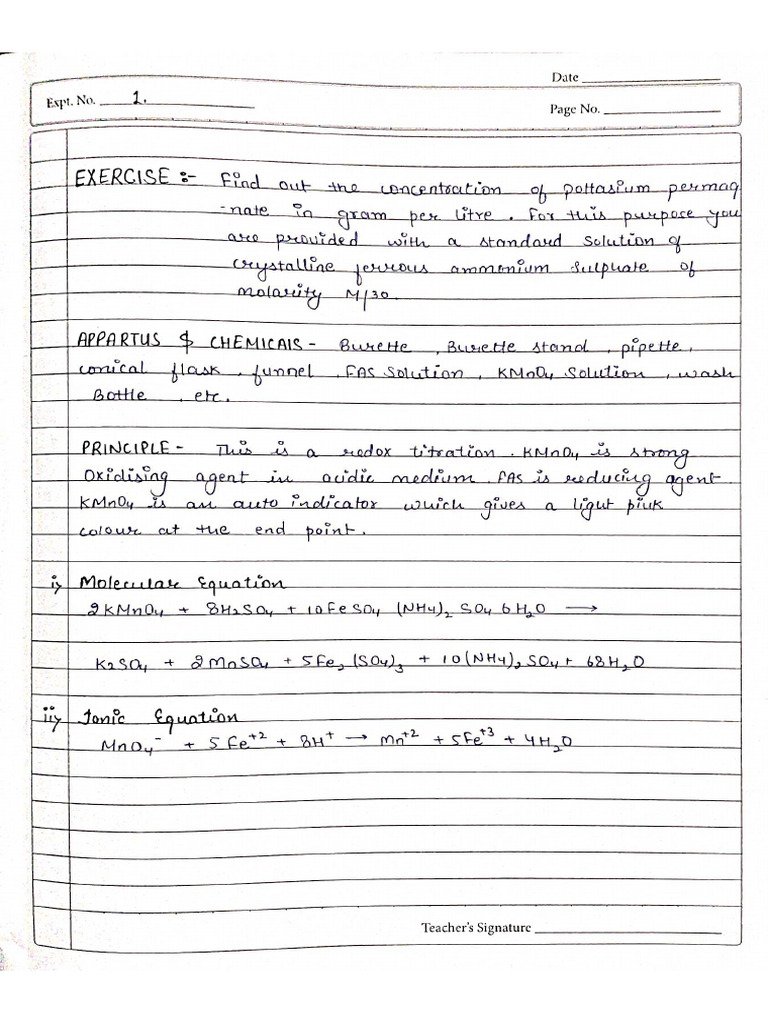 Date
Expt. No. 1.
Page No.
EXERCISE :- Find out the concentration of pottasium permag
-nate in gram per litre. For this purpose you
are provided with a standard solution of
crystalline ferrous ammonium sulphate of
molarity M/30.
APPARTUS & CHEMICAIS - Burette, Burette stand, pipette,
conical flask, funnel, FAS solution, KMnO4 solution, wash
Bottle, etc.
PRINCIPLE - This is a redox titration. KMnO4 is strong
Oxidising agent in acidic medium. FAS is reducing agent.
KMnO4 is an auto indicator which gives a light pink
colour at the end point.
i) Molecular Equation
2KMnO4 + 8H2SO4 + 10FeSO4 (NH4)2 SO4 6H2O →
K2SO4 + 2MnSO4 + 5Fe2(SO4)3 + 10(NH4)2SO4 + 68H2O
ii) Ionic Equation
MnO4⁻ + 5Fe⁺² + 8H⁺ → Mn⁺² + 5Fe⁺³ + 4H2O
Teacher's Signature